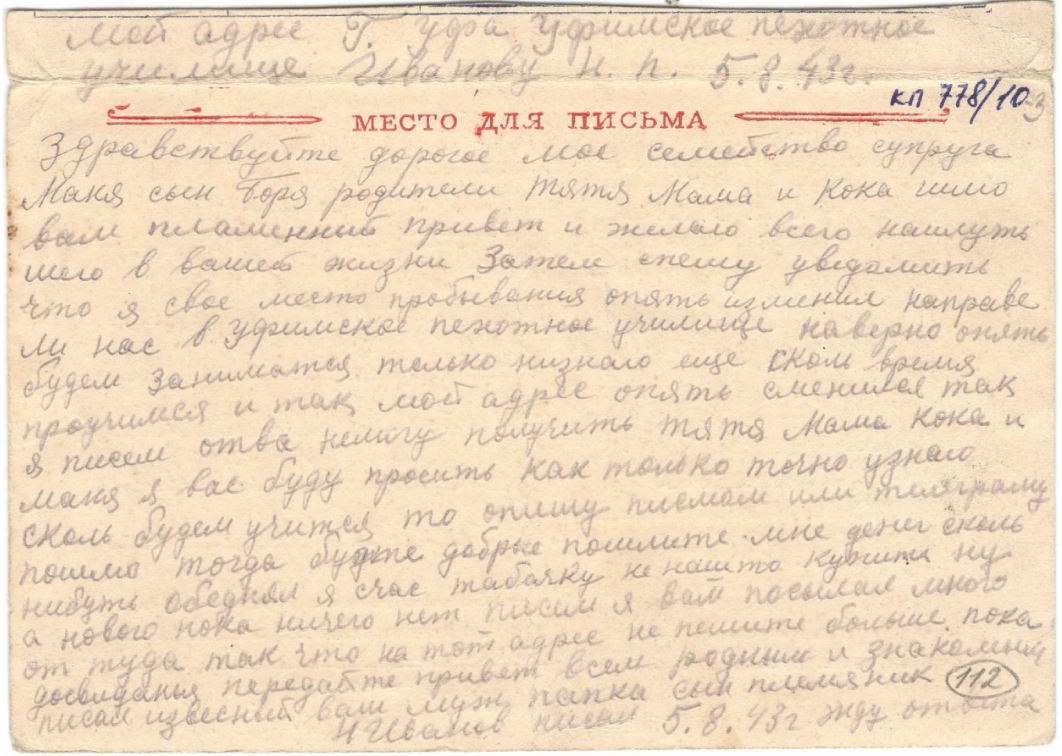 мой адрес Г. Уфа Уфимское пехотное
училище Иванову Н. П. 5.8.43г.
КП 778/10-3
МЕСТО ДЛЯ ПИСЬМА
Здравствуйте дорогое мое семейство супруга
Маня сын Боря родители тятя Мама и Кока шлю
вам пламенный привет и желаю всего наилуть
шего в вашей жизни Затем спешу уведамить
что я свое место пробывания опять изменил направе
ли нас в Уфимское пехотное училище наверно опять
будем заниматся только низнаю еще сколь время
проучимся и так мой адрес опять сменился так
я писем отва немогу получить тятя Мама Кока и
маня я вас буду просить как только точно узнаю
сколь будем учится то опишу писмом или телеграму
пошлю тогда будте добрые пошлите мне денег сколь
нибуть обеднял я счас табачку не нашто купить ну
а нового пока ничего нет писем я вам посылал много
от туда так что на тот адрес не пешите больше пока
досвиданья передайте привет всем родным и знакомым
писал извесный ваш муж папка сын племяник
112
Н Иванов писал 5.8.43г жду ответа